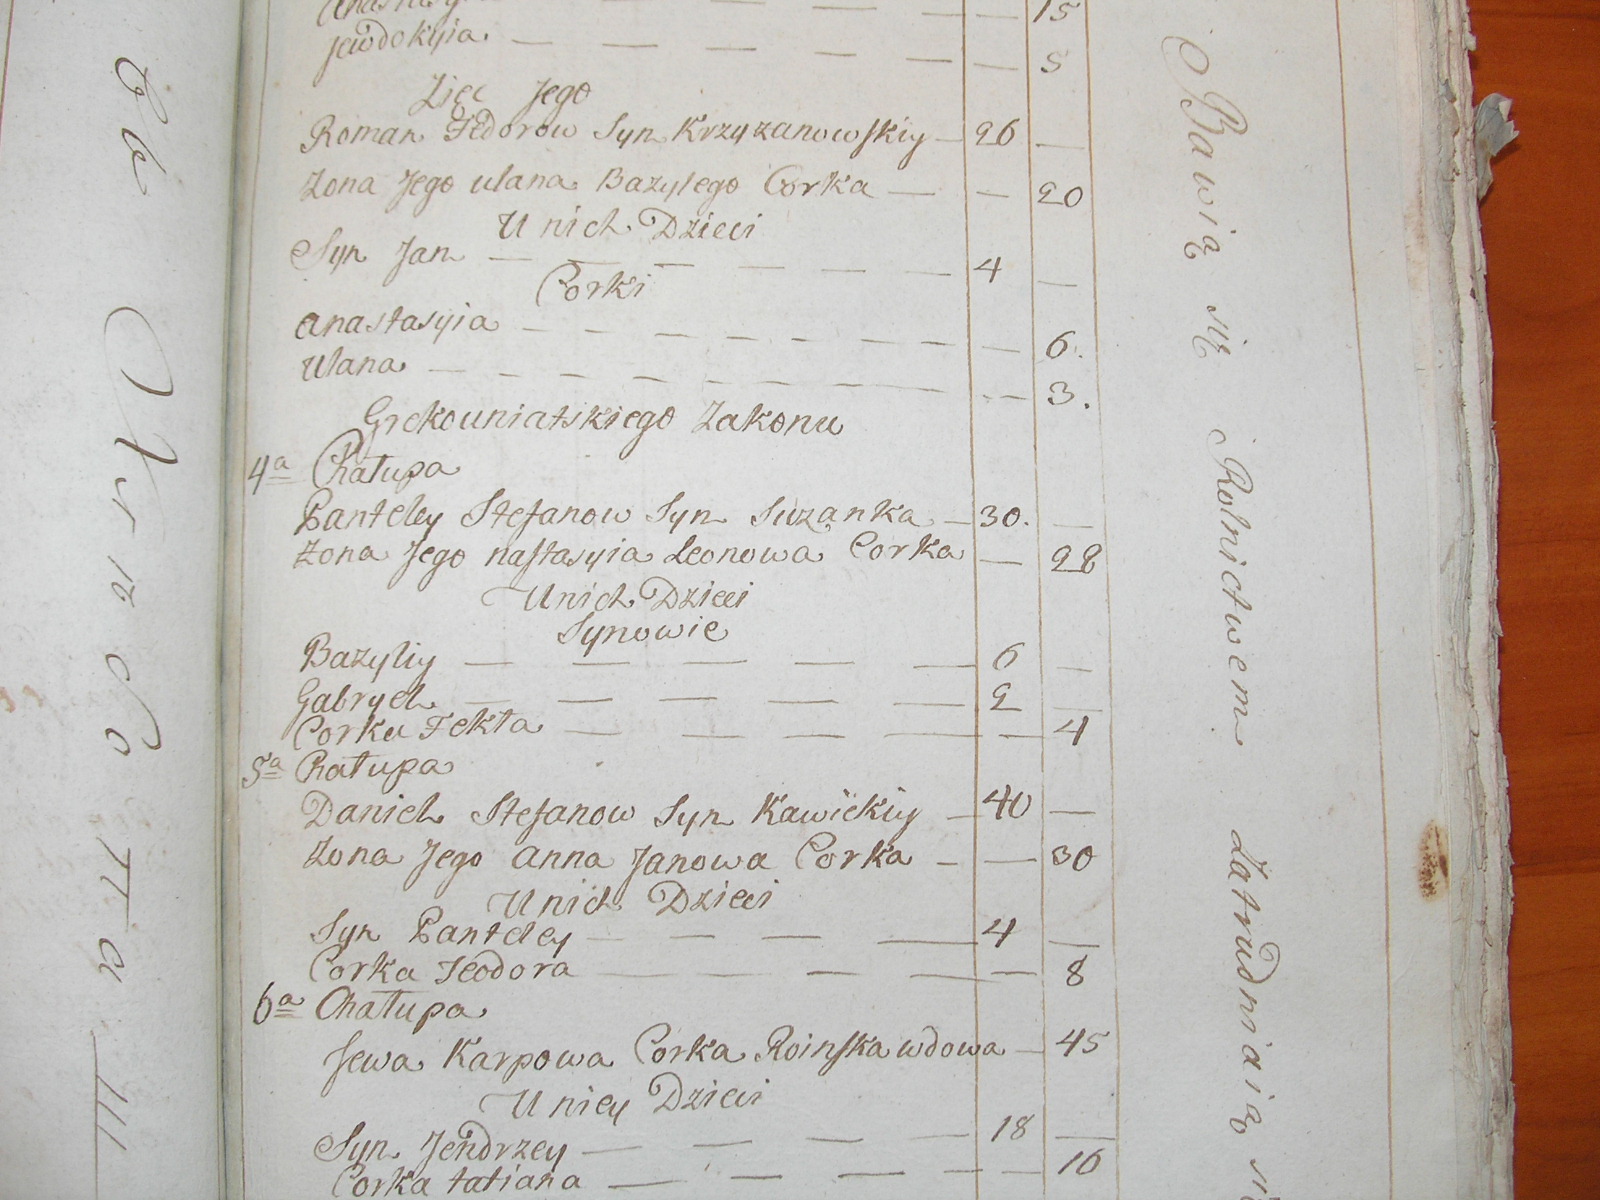 15
Jewdokyia — — — — — — 5
Zięc Jego
Roman Fedorow Syn Krzyzanowskiy — 26 —
Zona Jego Ulana Bazylego Corka — — 20
U nich Dzieci
Syn Jan — — — — — — 4 —
Corki
Anastasyia — — — — — — — 6.
Ulana — — — — — — — 3.
Grekouniatskiego Zakonu
4a Chałupa
Panteley Stefanow Syn Suzanka — 30. —
Zona Jego Nastasyia Leonowa Corka — 28
U nich Dzieci
Synowie
Bazyliy — — — — — 6 —
Gabryel — — — — — 2 —
Corka Tekla — — — — — 4
5a Chałupa
Daniel Stefanow Syn Kawickiy — 40 —
Zona Jego Anna Janowa Corka — — 30
U nich Dzieci
Syn Panteley — — — — 4 —
Corka Teodora — — — — 8
6a Chałupa
Jewa Karpowa Corka Roinska wdowa — 45
U niey Dzieci
Syn Jendrzey — — — — 18 —
Corka tatiana — — — — — 16
Bawią się Rolnictwem Zatrudniaią